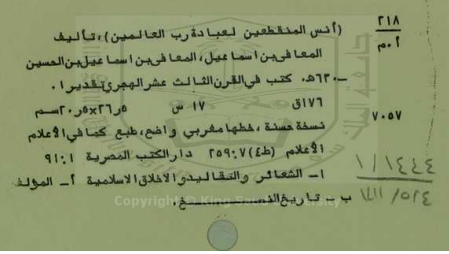 ٢١٨
أ٠م
(أنس المنقطعين لعبادة رب العالمين)، تأليف
المعافى بن اسماعيل، المعافى بن اسماعيل بن الحسين
ـ ٦٣٠هـ. كتب في القرن الثالث عشر الهجري تقديرا ٠
١٧٦ق ١٧ س ٢٦٫٥×٢٠٫٥سم
٧٠٥٧
نسخة حسنة ، خطها مغربي واضح، طبع كما في الأعلام
الأعلام (ط٤) ٢٥٩:٧ دار الكتب المصرية ٩١:١
١ـ الشعائر والتقاليد والاخلاق الاسلامية أـ المؤلف
ب ـ تاريخ النسخ.
Copyright © King Saud University